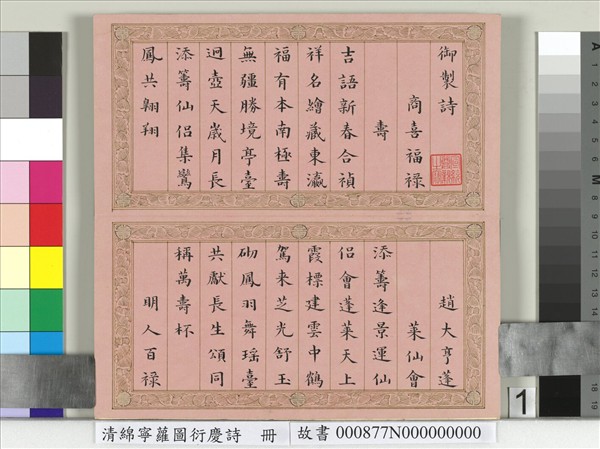 御製詩
商喜福祿
壽
吉語新春合禎
祥名繪藏東瀛
福有本南極壽
無疆勝境亭臺
迥壺天歲月長
添籌仙侶集鸞
鳳共翱翔
趙大亨蓬
萊仙會
添籌逢景運仙
侶會蓬萊天上
霞標建雲中鶴
駕來芝光舒玉
砌鳳羽舞瑤臺
共獻長生頌同
稱萬壽杯
明人百祿
清綿寧蘿圖衍慶詩 冊
故書 000877N000000000
1